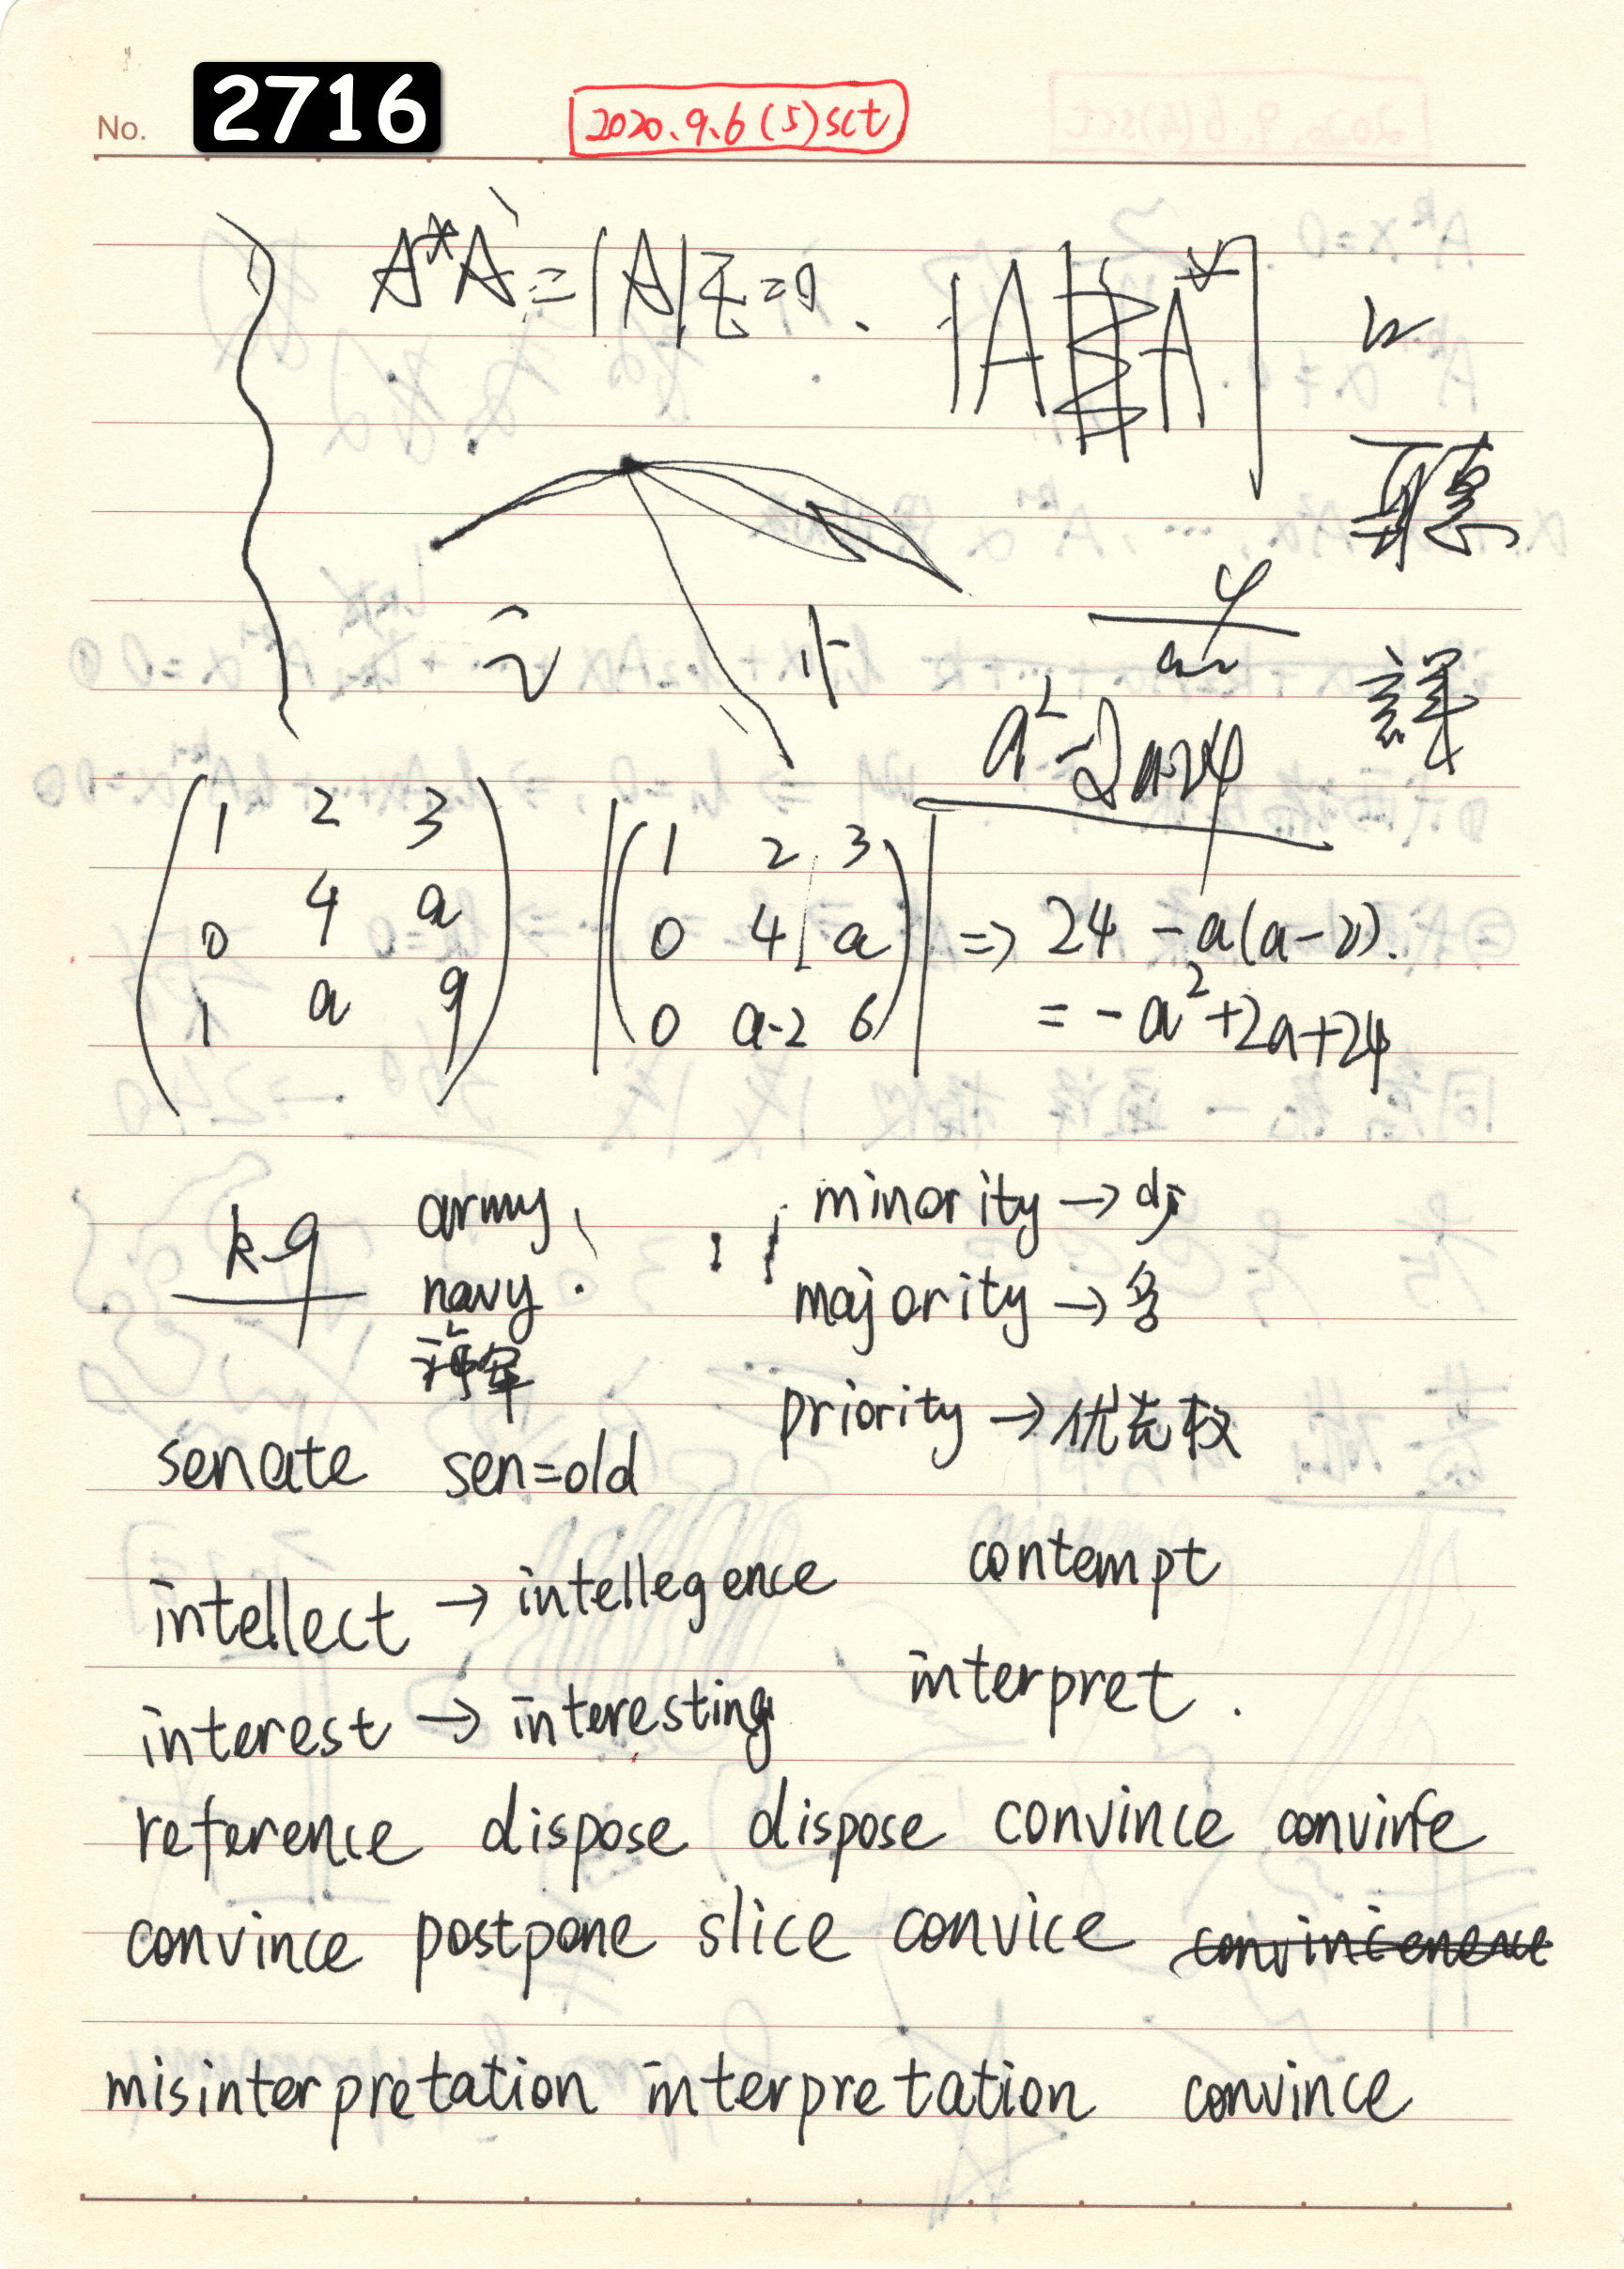 No. 2716
2020.9.6(5)sct
A*A=|A|E=0.
聽
4
a²-2a-24
譯
1 2 3
0 4 a
1 a 9
1 2 3
0 4 a
0 a-2 6
=> 24 -a(a-2).
= -a²+2a+24
k-9
army
navy
minority →少
majority →多
priority →优先权
senate sen=old
intellect → intellegence
contempt
interest → interesting
interpret.
reference dispose dispose convince
convince postpone slice convice
misinterpretation interpretation convince